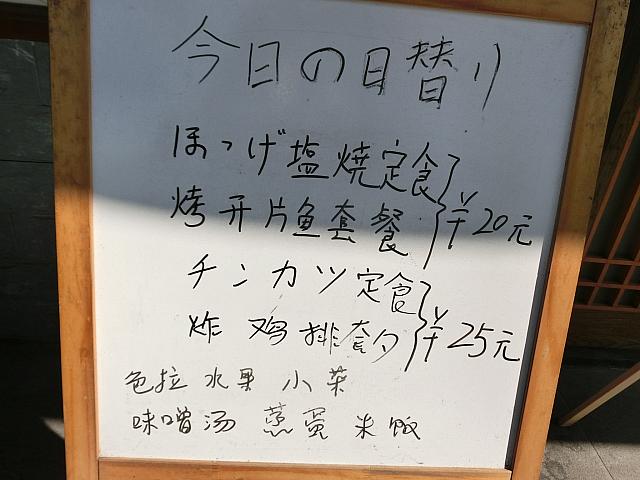 今日の日替り
ほっけ塩焼定食
烤开片鱼套餐 ¥20元
チンカツ定食
炸鸡排套夕 ¥25元
色拉 水果 小菜
味噌汤 蒸蛋 米饭